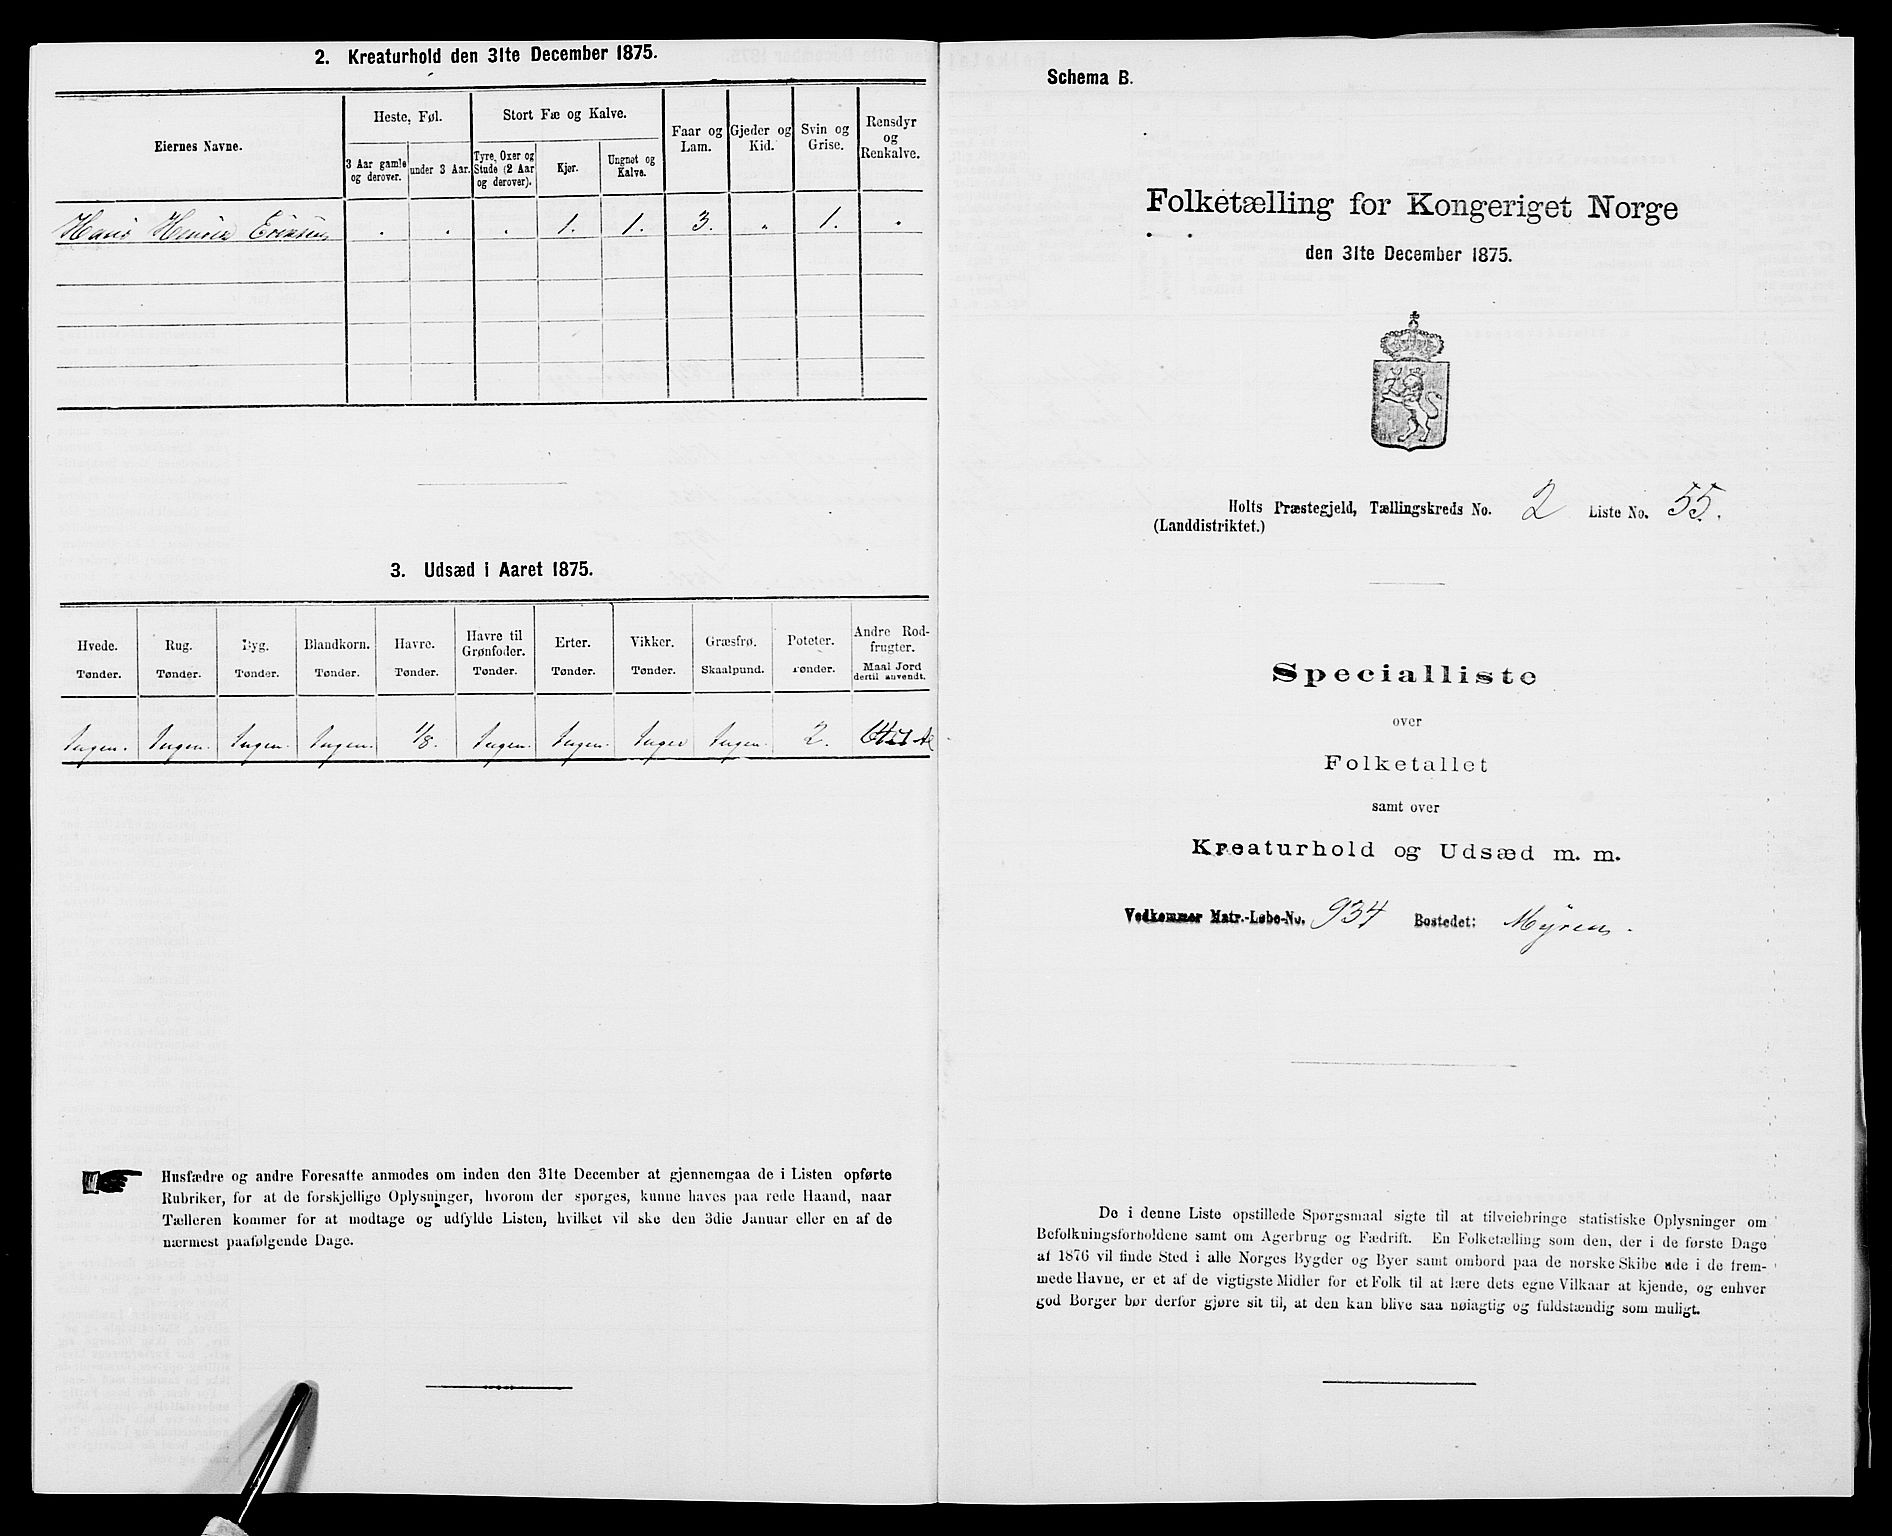 2. Kreaturhold den 31te December 1875.
Eiernes Navne.
Heste, Føl.
Stort Fæ og Kalve.
Faar og Lam.
Gjeder og Kid.
Svin og Grise.
Rensdyr og Renkalve.
3 Aar gamle og derover.
under 3 Aar.
Tyre, Oxer og Stude (2 Aar og derover).
Kjør.
Ungnøt og Kalve.
Hans Henrik Eriksen . . . 1. 1. 3. „ 1. „
3. Udsæd i Aaret 1875.
Hvede. Rug. Byg. Blandkorn. Havre. Havre til Grønfoder. Erter. Vikker. Græsfrø. Poteter. Andre Rodfrugter.
Tønder. Tønder. Tønder. Tønder. Tønder. Tønder. Tønder. Tønder. Skaalpund. Tønder. Maal Jord dertil anvendt.
Ingen. Ingen. Ingen. Ingen. 1/8. Ingen. Ingen. Ingen Ingen. 2.
Husfædre og andre Foresatte anmodes om inden den 31te December at gjennemgaa de i Listen opførte
Rubriker, for at de forskjellige Oplysninger, hvorom der spørges, kunne haves paa rede Haand, naar
Tælleren kommer for at modtage og udfylde Listen, hvilket vil ske den 3die Januar eller en af de
nærmest paafølgende Dage.
Schema B.
Folketælling for Kongeriget Norge
den 31te December 1875.
Holts Præstegjeld, Tællingskreds No. 2 Liste No. 55.
(Landdistriktet.)
Specialliste
over
Folketallet
samt over
Kreaturhold og Udsæd m. m.
Vedkommer Matr.-Løbe-No. 934 Bostedet: Myren.
De i denne Liste opstillede Spørgsmaal sigte til at tilveiebringe statistiske Oplysninger om
Befolkningsforholdene samt om Agerbrug og Fædrift. En Folketælling som den, der i de første Dage
af 1876 vil finde Sted i alle Norges Bygder og Byer samt ombord paa de norske Skibe ude i de frem-
mede Havne, er et af de vigtigste Midler for et Folk til at lære dets egne Vilkaar at kjende, og enhver
god Borger bør derfor gjøre sit til, at den kan blive saa nøiagtig og fuldstændig som muligt.